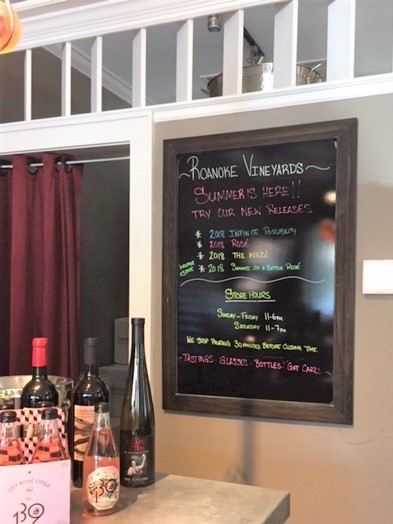 ~ROANOKE VINEYARDS~
SUMMER IS HERE!!
TRY OUR NEW RELEASES
* 2018 INFINITE POSSIBILITY
* 2018 ROSÉ
* 2018 THE WILD!
* 2018 SUMMER IN A BOTTLE ROSÉ
STORE HOURS
SUNDAY-FRIDAY 11-6PM
SATURDAY 11-7PM
WE STOP POURING 30 MINUTES BEFORE CLOSING TIME
~TASTINGS GLASSES BOTTLES GIFT CARDS
DRY ROSE CIDER
139
139